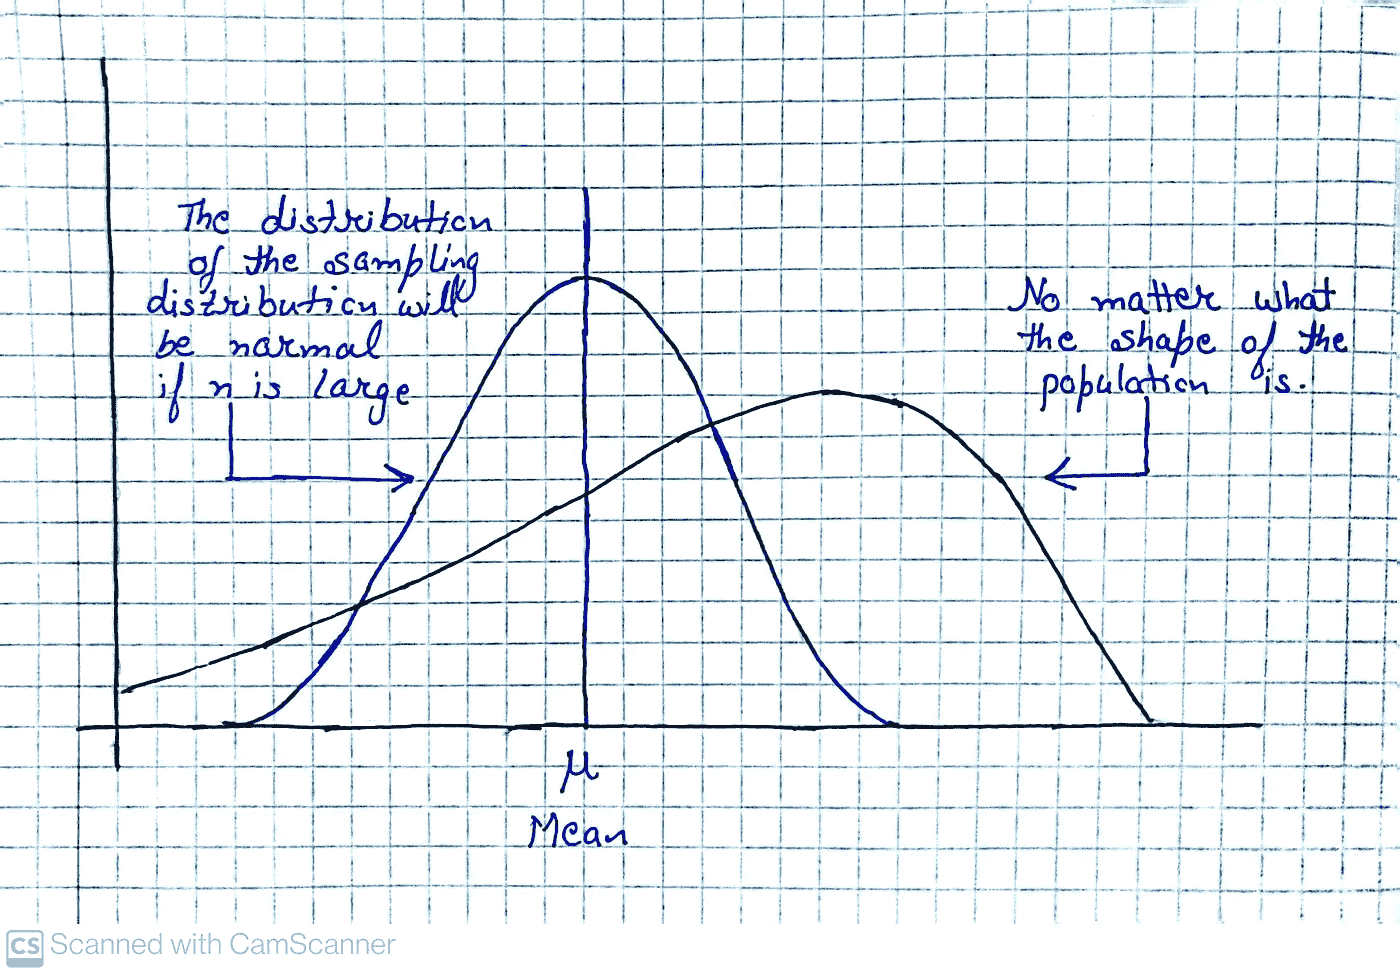 The distribution
of the sampling
distribution will
be normal
if n is large
No matter what
the shape of the
population is.
μ
Mean
CS Scanned with CamScanner